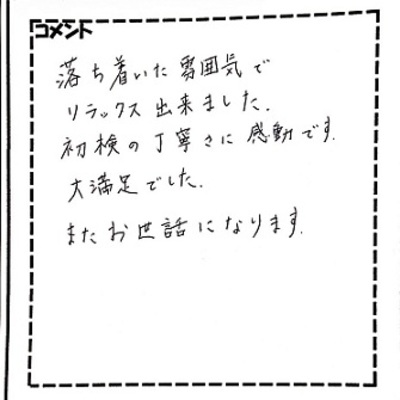 コメント
落ち着いた雰囲気で
リラックス出来ました.
初検の丁寧さに感動です.
大満足でした.
またお世話になります.